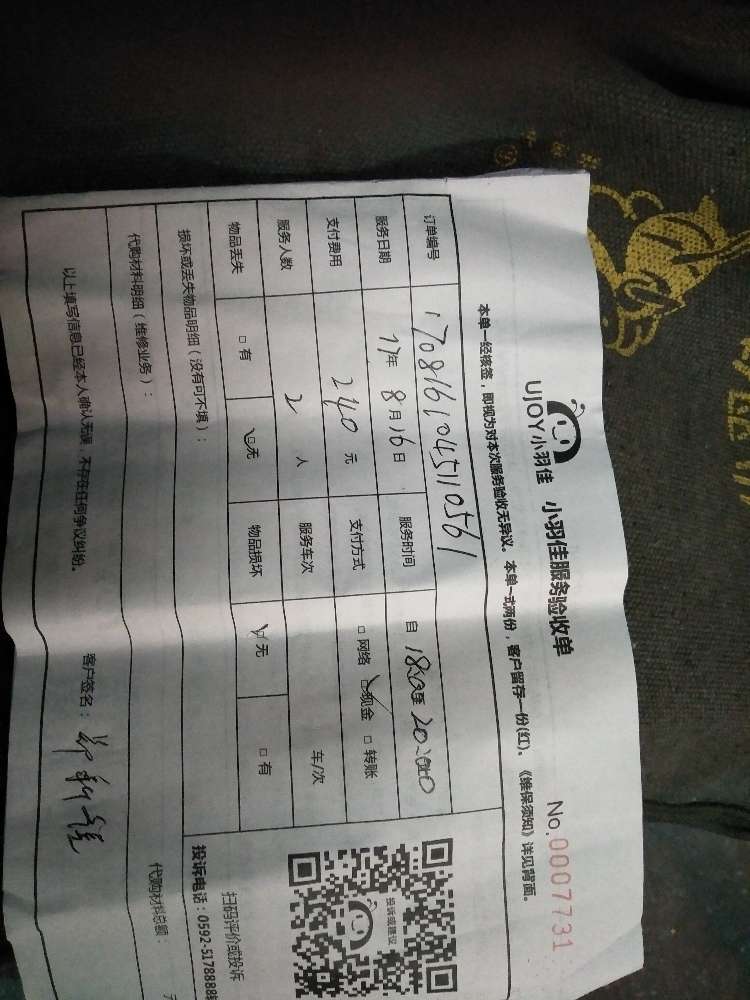 UJOY小羽佳 小羽佳服务验收单
No.0007731
本单一经核签，即视为对本次服务验收无异议。本单一式两份，客户留存一份(红)。《维保须知》详见背面。
订单编号 1708161045110561
服务日期 17年 8月16日 服务时间 自 18:00至
支付费用 240元 支付方式 □网络 ☑现金 □转账
服务人数 2人 服务车次 车/次
物品丢失 □有 ☑无 物品损坏 ☑无 □有
损坏或丢失物品明细（没有可不填）：
代购材料明细（维修业务）： 代购材料总额：
以上填写信息已经本人确认无误，不存在任何争议纠纷。 客户签名：
投诉或建议
扫码评价或投诉
投诉电话：0592-5178888